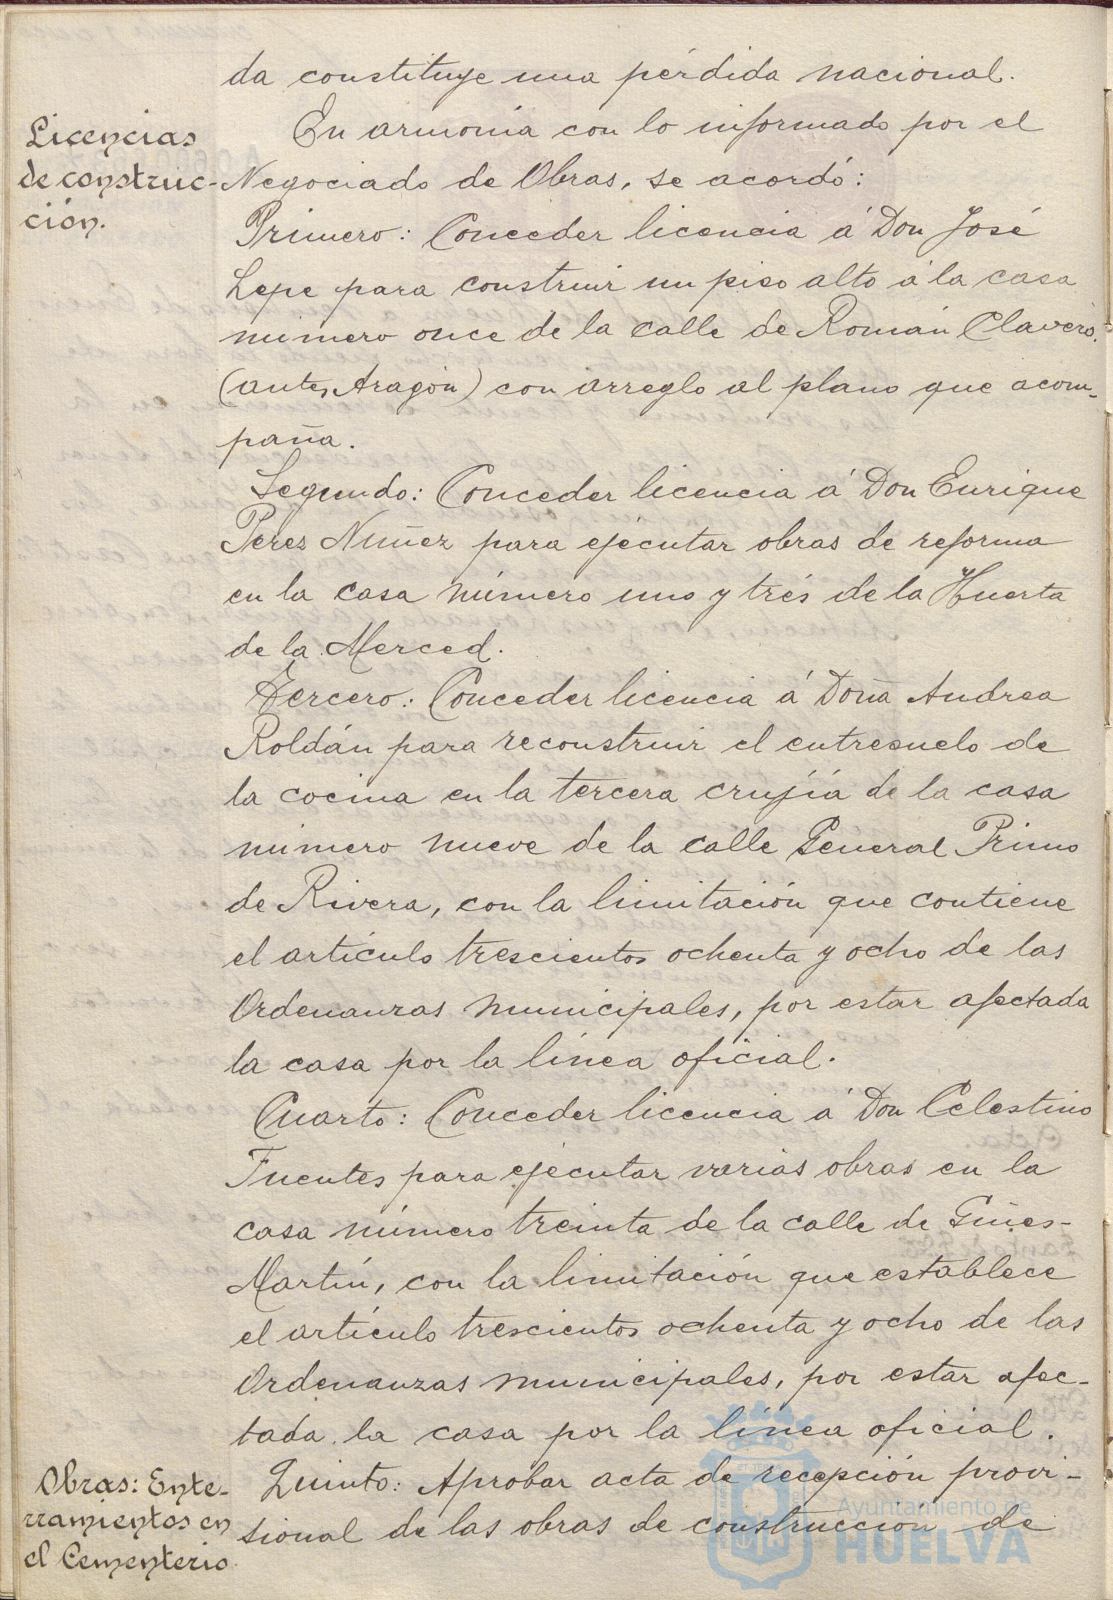 da constituye una pérdida nacional.
Licencias
de construc-
ción.
En armonía con lo informado por el
Negociado de Obras, se acordó:
Primero: Conceder licencia á Don José
Lepe para construir un piso alto á la casa
número once de la calle de Román Clavero.
(antes Aragón) con arreglo al plano que acom-
paña.
Segundo: Conceder licencia á Don Enrique
Perez Nuñez para ejécutar obras de reforma
en la casa número uno y trés de la Huerta
de la Merced.
Tercero: Conceder licencia á Doña Andrea
Roldán para reconstruir el entresuelo de
la cocina en la tercera crujía de la casa
número nueve de la calle General Primo
de Rivera, con la limitación que contiene
el artículo trescientos ochenta y ocho de las
Ordenanzas municipales, por estar afectada
la casa por la línea oficial.
Cuarto: Conceder licencia á Don Celestino
Fuentes para ejecutar varias obras en la
casa número treinta de la calle de Giñes-
Martín, con la limitación que establece
el artículo trescientos ochenta y ocho de las
Ordenanzas municipales, por estar afec-
tada la casa por la línea oficial.
Obras: Ente-
rramientos en
el Cementerio.
Quinto: Aprobar acta de recepción provi-
sional de las obras de construccion de
Ayuntamiento de
HUELVA